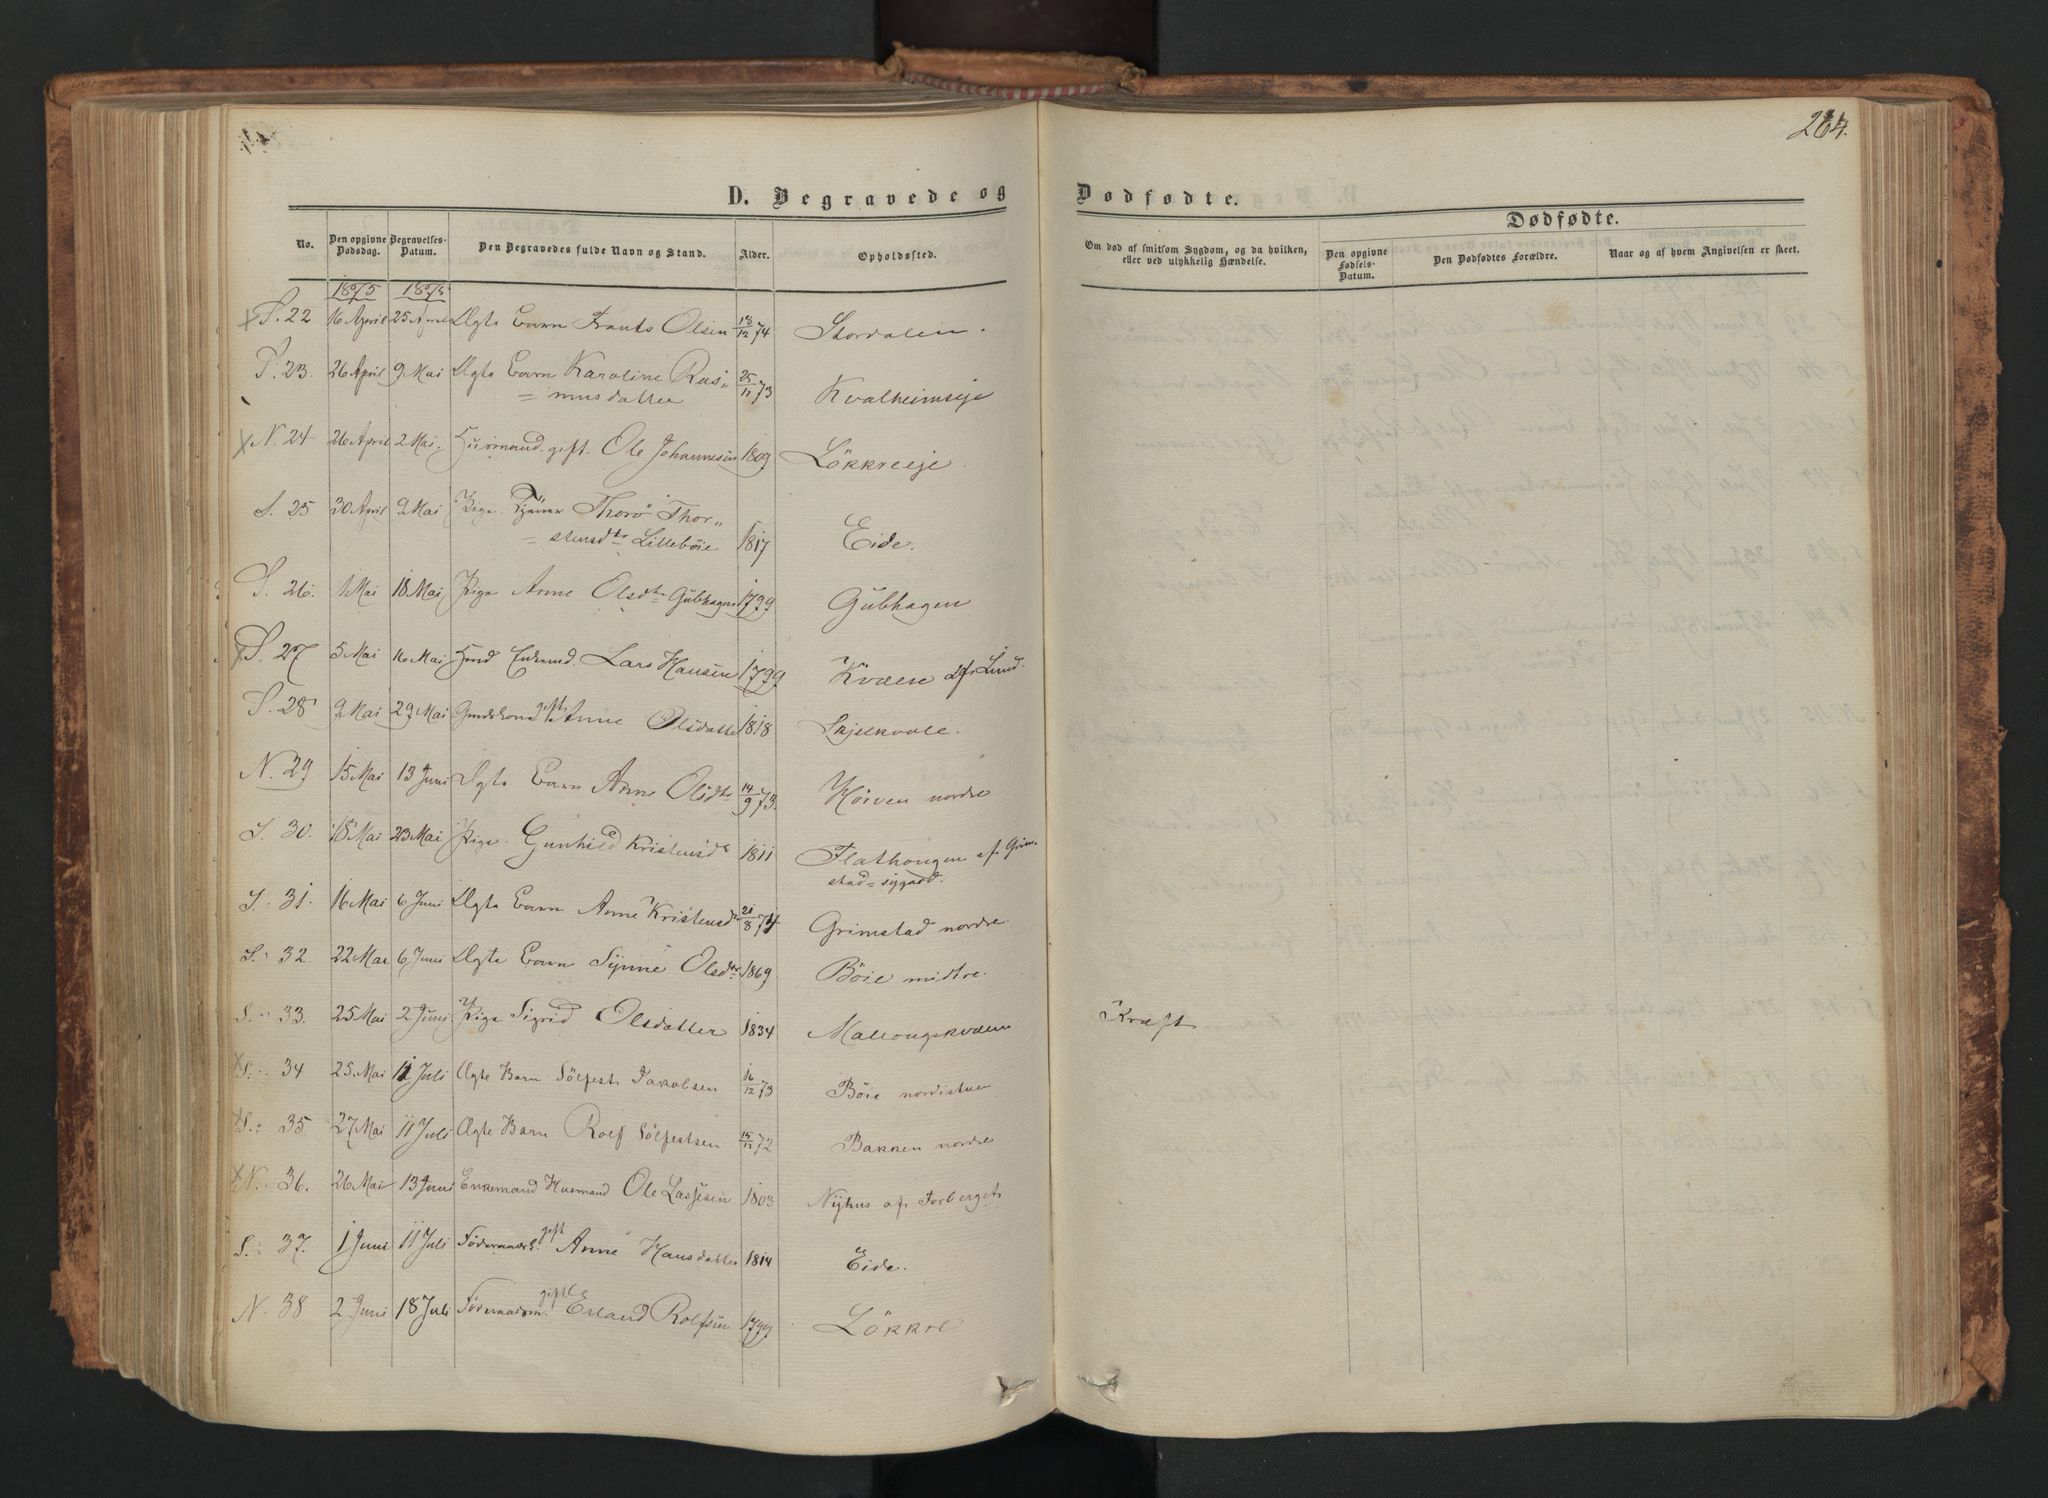 264.
D. Begravede og Dødfødte.
Dødfødte.
No.
Den opgivne Dødsdag.
Begravelses-Datum.
Den Begravedes fulde Navn og Stand.
Alder.
Opholdssted.
Om død af smitsom Sygdom, og da hvilken, eller ved ulykkelig Hændelse.
Den opgivne Fødsels-Datum.
Den Dødfødtes Forældre.
Naar og af hvem Angivelsen er skeet.
1875 1875
S. 22 16 April 25 April Ægte Barn Frants Olsen 18/12 74 Stordalen.
S. 23. 26 April 9 Mai Ægte Barn Karoline Ras„
= musdatter 25/11 73 Kvalheimseje
N. 24 26 April 2 Mai. Huusmand gift. Ole Johannesen 1809 Lökkreeje
S. 25 30 April 9 Mai Pige. Tjener Thorö Thor„
= stensdtr Lillebøie 1817 Eide.
S. 26. 1 Mai 18 Mai Pige Anne Olsdtr Gubhagen 1799 Gubhagen
S. 27 5 Mai 16 Mai Lars Hansen 1799 Kvaere af Lund.
S. 28 9 Mai 29 Mai gift Anne Olsdatter 1818 Skjelkvale.
N. 29 15 Mai 13 Juni Ægte Barn Anne Olsdtr 14/9 73. Høiven nordre
S. 30. 18 Mai 23 Mai Pige. Gunhild Kristensd 1811 Flathougen af Grim-
stad-sygard.
S. 31. 16 Mai 6 Juni Ægte Barn Anne Kristensdr 21/8 74 Grimstad nordre
S. 32. 22 Mai 6 Juni Ægte Barn Synne Olsdtr 1869 Böie midtre.
S. 33. 25 Mai 2 Juni Pige Sigrid Olsdatter 1834 Kræft
S. 34 25 Mai 11 Juli Ægte Barn Sölfest Jakobsen 16/12 73 Böie nordistuen
S. 35 27 Mai 11 Juli Ægte Barn Rolf Sölfestsen 15/12 72 Bakken nordre
N. 36. 26 Mai 13 Juni Enkemand Husmand Ole Lassesen 1803 Nyhus af Forberget
S. 37. 1 Juni 11 Juli gift Anne Hansdatter 1814 Eide.
N. 38 2 Juni 18 Juli gift Erland Rolfsen 1799 Lökkre